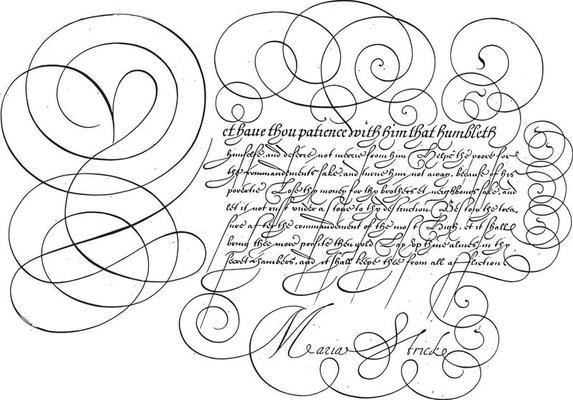 Yet haue thou patience with him that humbleth
himselfe, and deferre not mercie from him Helpe the poore for
the commandments sake and turne him not away, because of his
povertie Lose thy money for thy brothers et neighbours sake, and
let it not rust under a stone to thy destruction Bestow thy trea,
sure after the commandement of the most High, et it shall
bring thee more profite then gold Lay up thine almes in thy
secret chambers, and it shall keepe thee from all affliction
Maria Strick